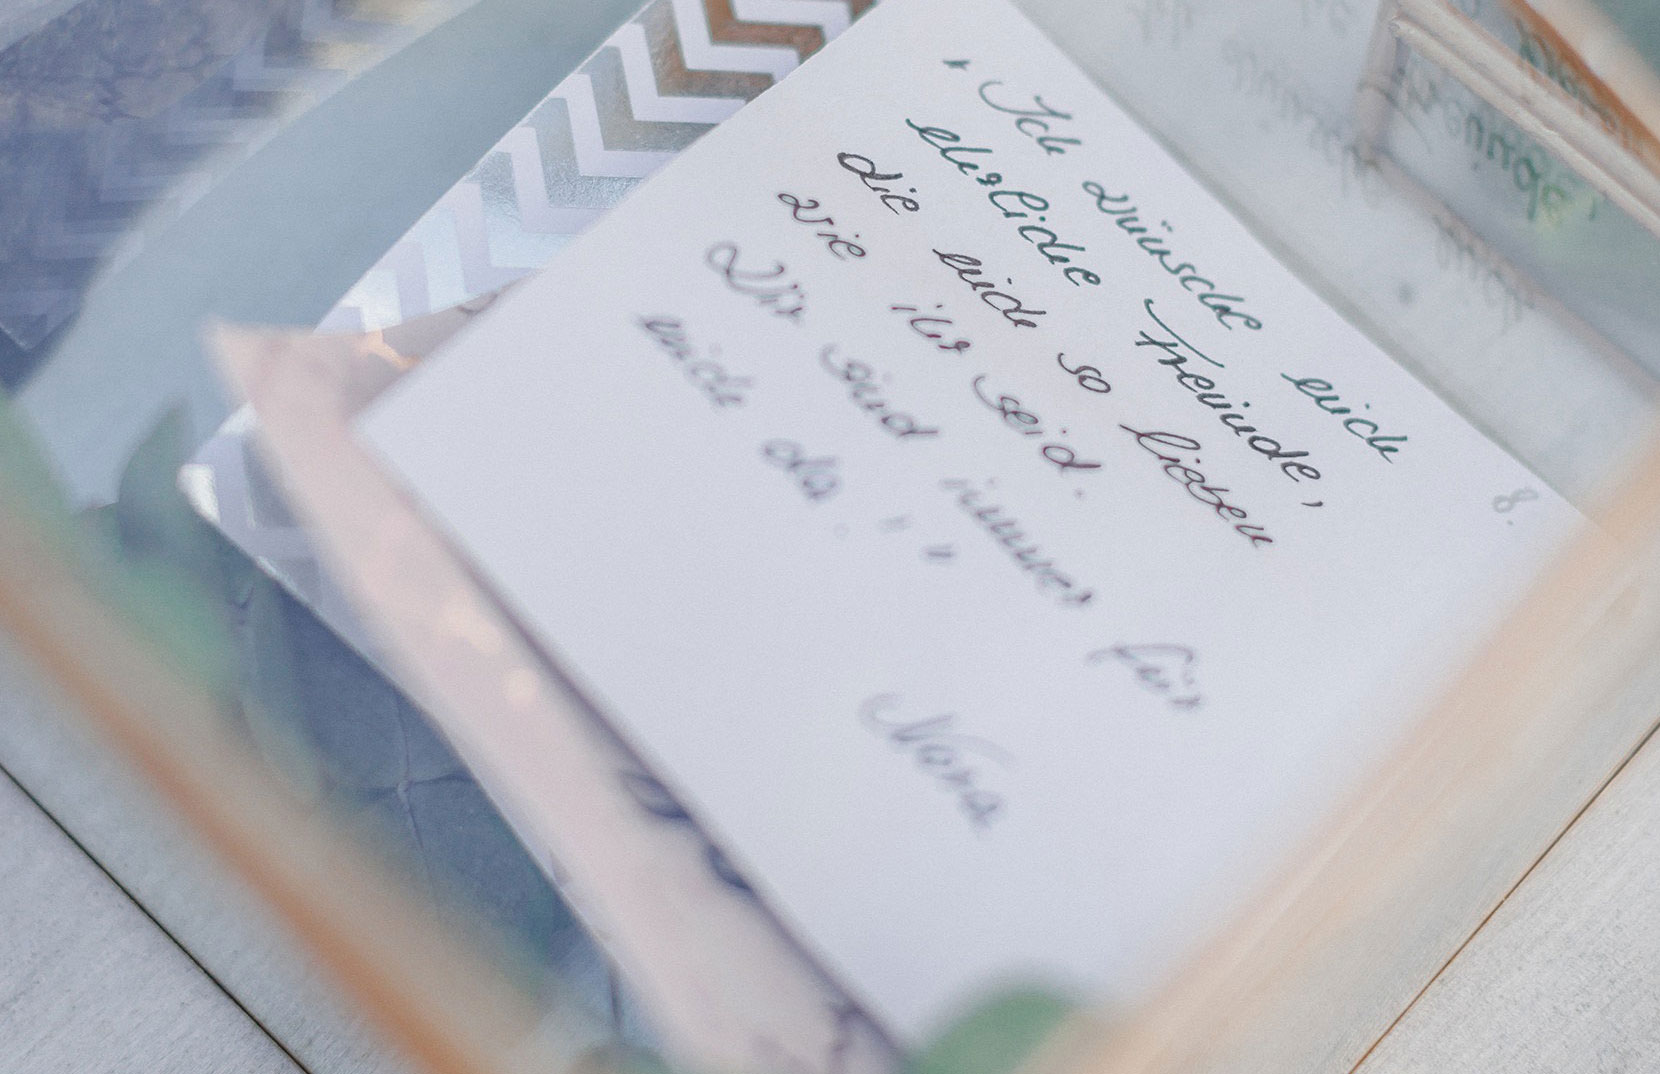 "Ich wünsche euch
ehrliche Freunde,
die euch so lieben
wie ihr seid.
Wir sind immer für
euch da." "
Nona
8.